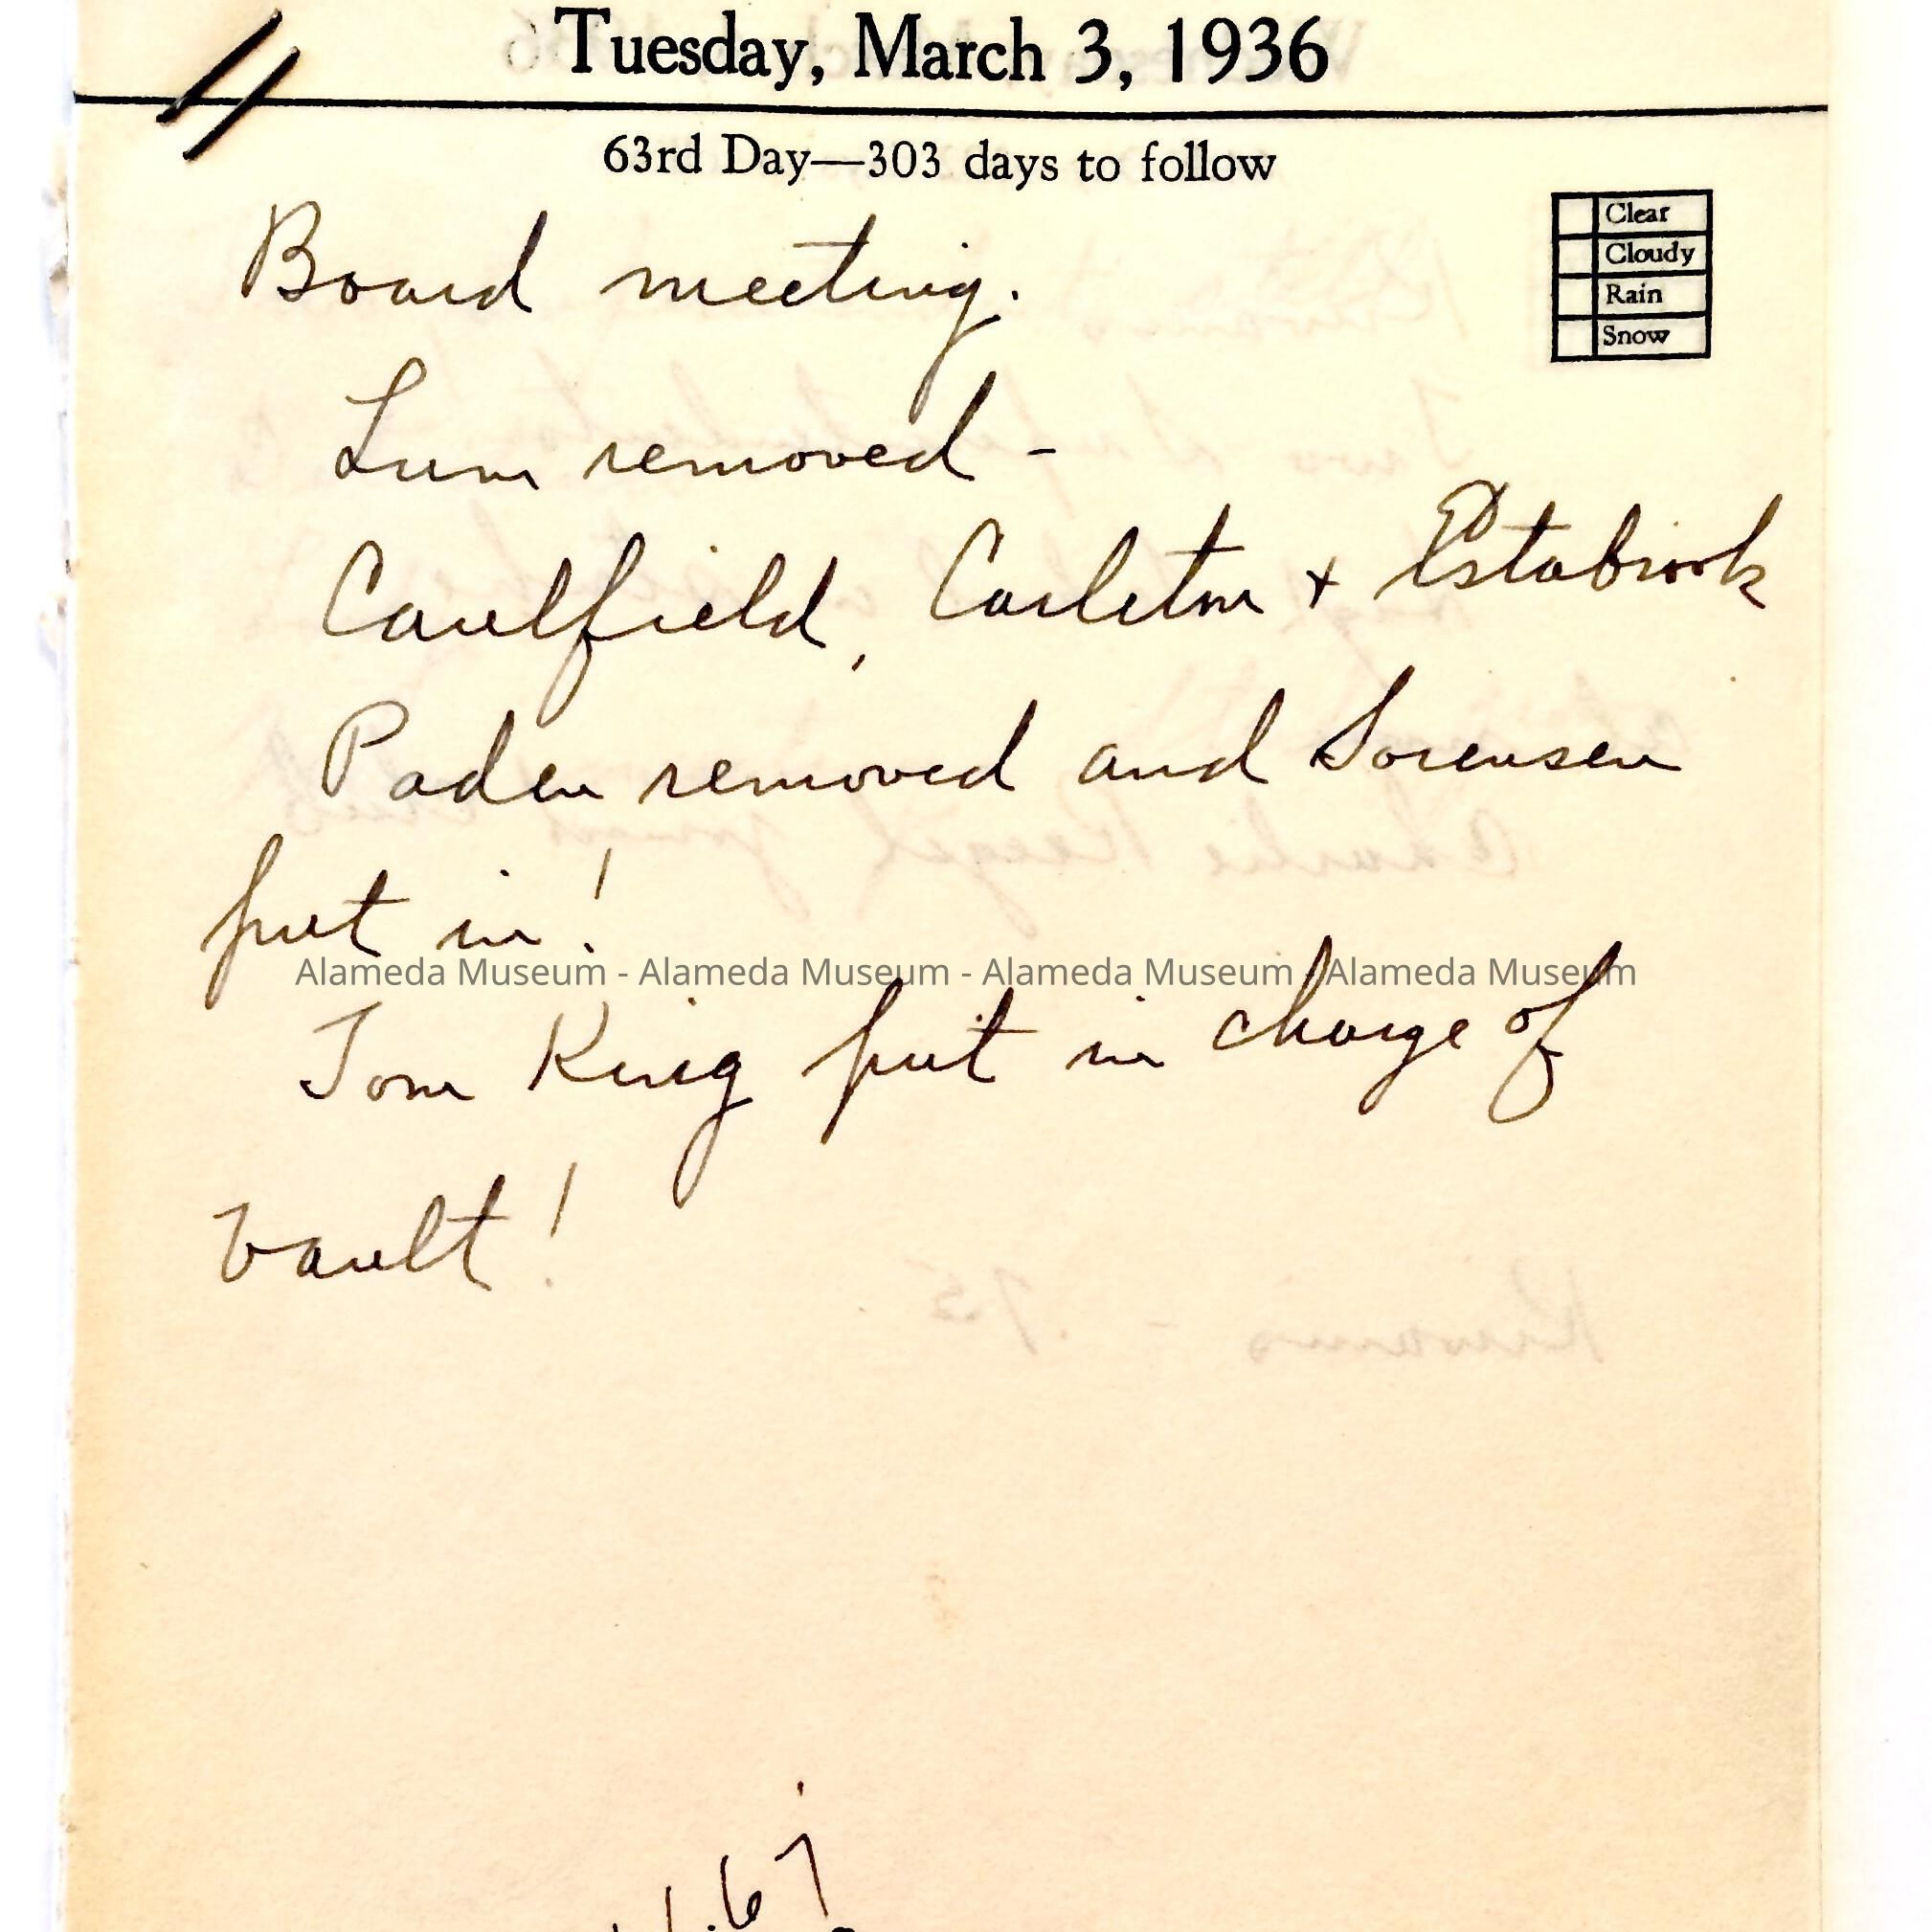 Tuesday, March 3, 1936
63rd Day—303 days to follow
Clear
Cloudy
Rain
Snow
Board meeting.
Lum removed -
Caulfield, Carleton + Estabrook
Paden removed and Sorensen
put in!
Alameda Museum - Alameda Museum - Alameda Museum - Alameda Museum
Tom King put in charge of
vault!